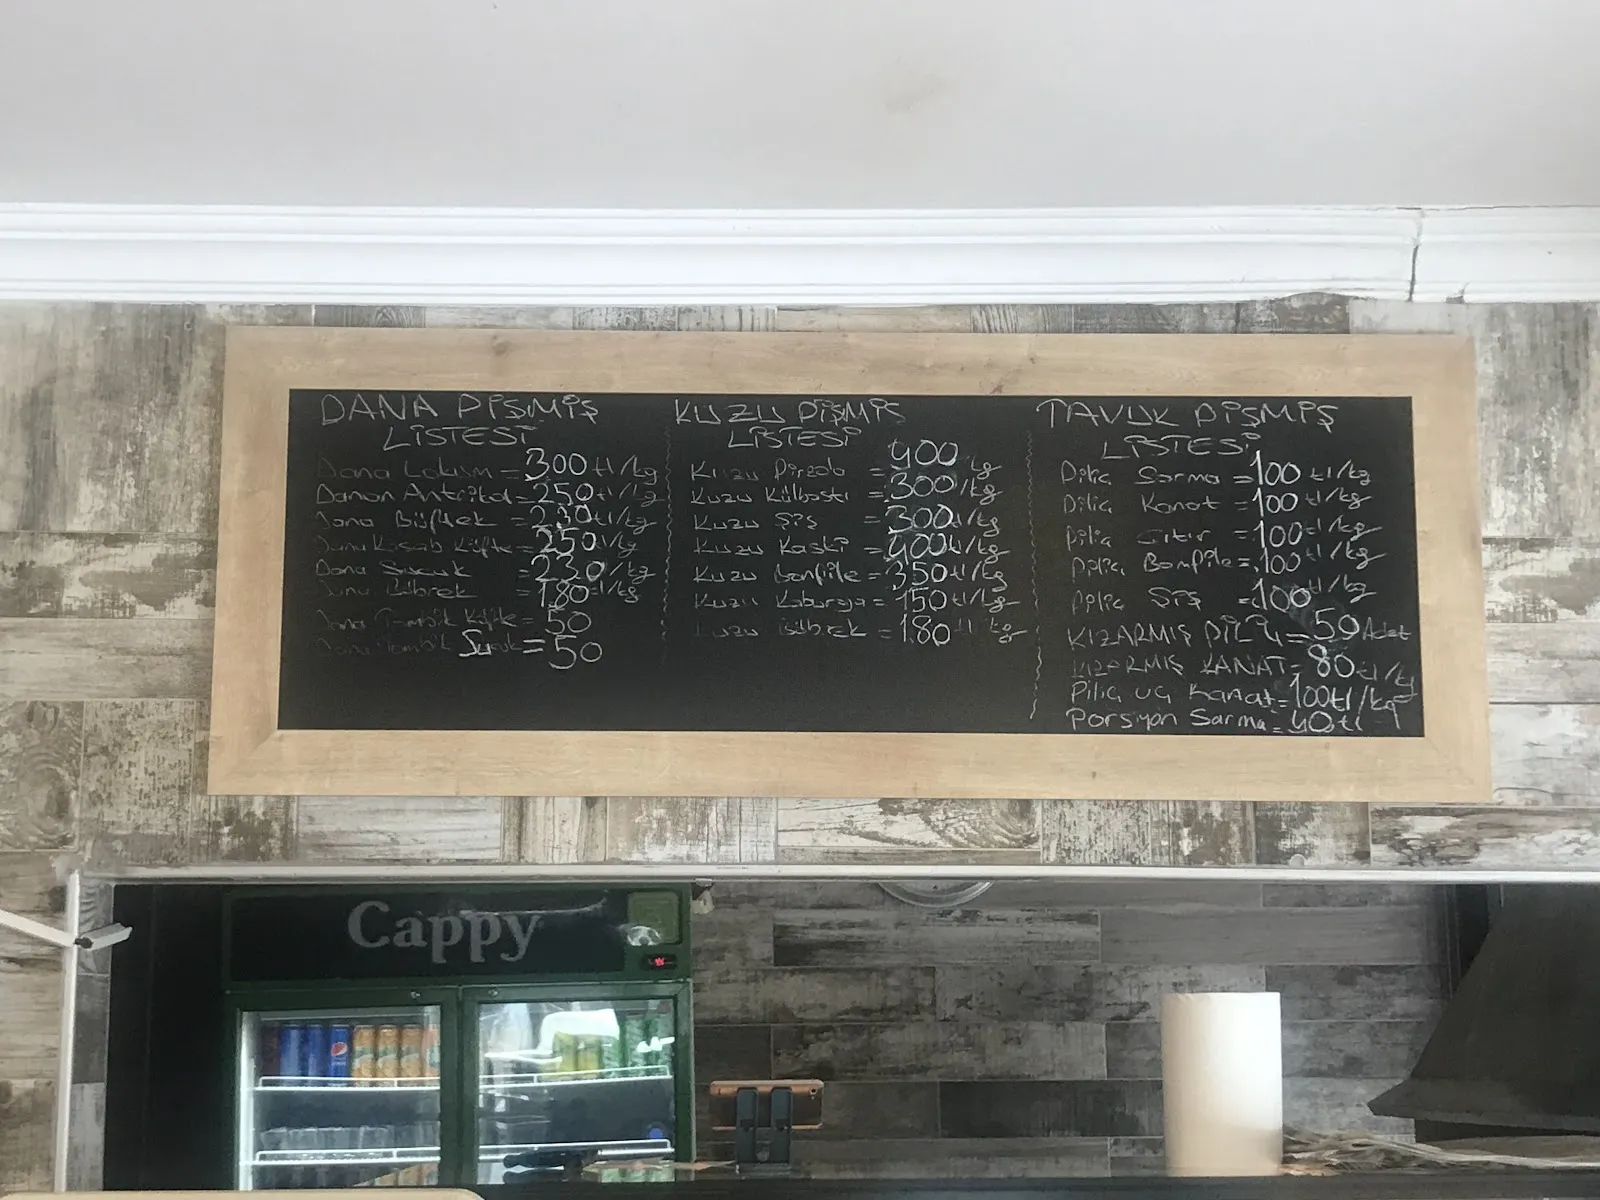 DANA PİŞMİŞ
LİSTESİ
Dana Lokum = 300 tl/kg
Danan Antrikot = 250 tl/kg
Dana Biftek = 230 tl/kg
Dana Kasab Köfte = 250 tl/kg
Dana Sucuk = 230/kg
Dana Böbrek = 180 tl/kg
Dana Tombik Köfte = 50
Dana Tombik Sucuk = 50
KUZU PİŞMİŞ
LİSTESİ
Kuzu Pirzola = 400 kg
Kuzu Külbastı = 300/kg
Kuzu Şiş = 300tl/kg
Kuzu Kaski = 400tl/kg
Kuzu bonfile = 350 tl/kg
Kuzu Kaburaga = 150 tl/kg
Kuzu böbrek = 180 tl kg
TAVUK PİŞMİŞ
LİSTESİ
Piliç Sarma = 100 tl/kg
Piliç Kanat = 100 tl/kg
Piliç Çıtır = 100 tl/kg
Piliç Bomfile = 100 tl/kg
Piliç Şiş = 100 tl/kg
KIZARMIŞ PİLİÇ = 50 Adet
KIZARMIŞ KANAT = 80 tl/kg
Piliç uç Kanat = 100tl/kg
Porsiyon Sarma = 40 tl
Cappy